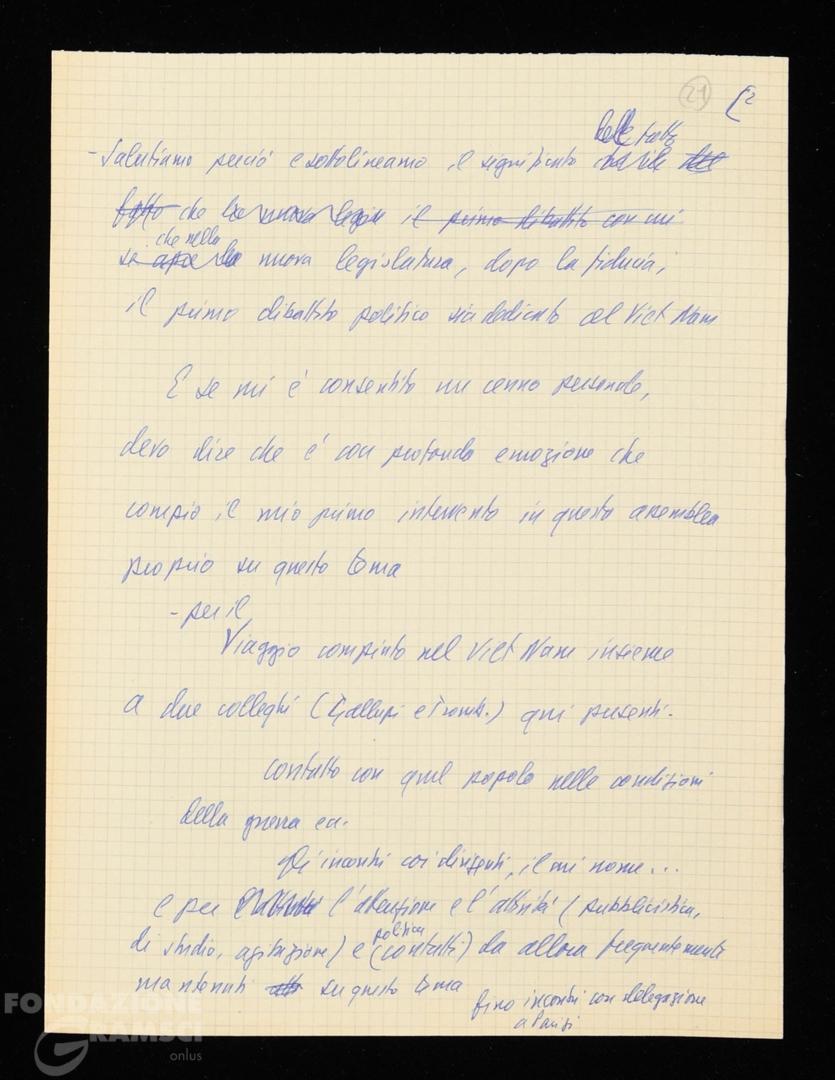 21
2
del fatto
- Salutiamo perciò e sottolineamo il significato
fatto che la nuova legis il primo dibattito con cui
che nella
si apre la nuova legislatura, dopo la fiducia,
il primo dibattito politico sia dedicato al Viet Nam
E se mi è consentito un cenno personale,
devo dire che è con profonda emozione che
compio il mio primo intervento in questa assemblea
proprio su questo tema
- per il
Viaggio compiuto nel Viet Nam insieme
a due colleghi (Galluzzi e Tromb.) qui presenti.
contatto con quel popolo nelle condizioni
della guerra ec.
Gli incontri coi dirigenti, il mi nome...
e per l'attenzione e l'attività (pubblicistica,
politica
di studio, agitazione) e (contatti) da allora frequentemente
mantenuti su questo tema
fino incontri con delegazione
a Parigi
FONDAZIONE
GRAMSCI
onlus